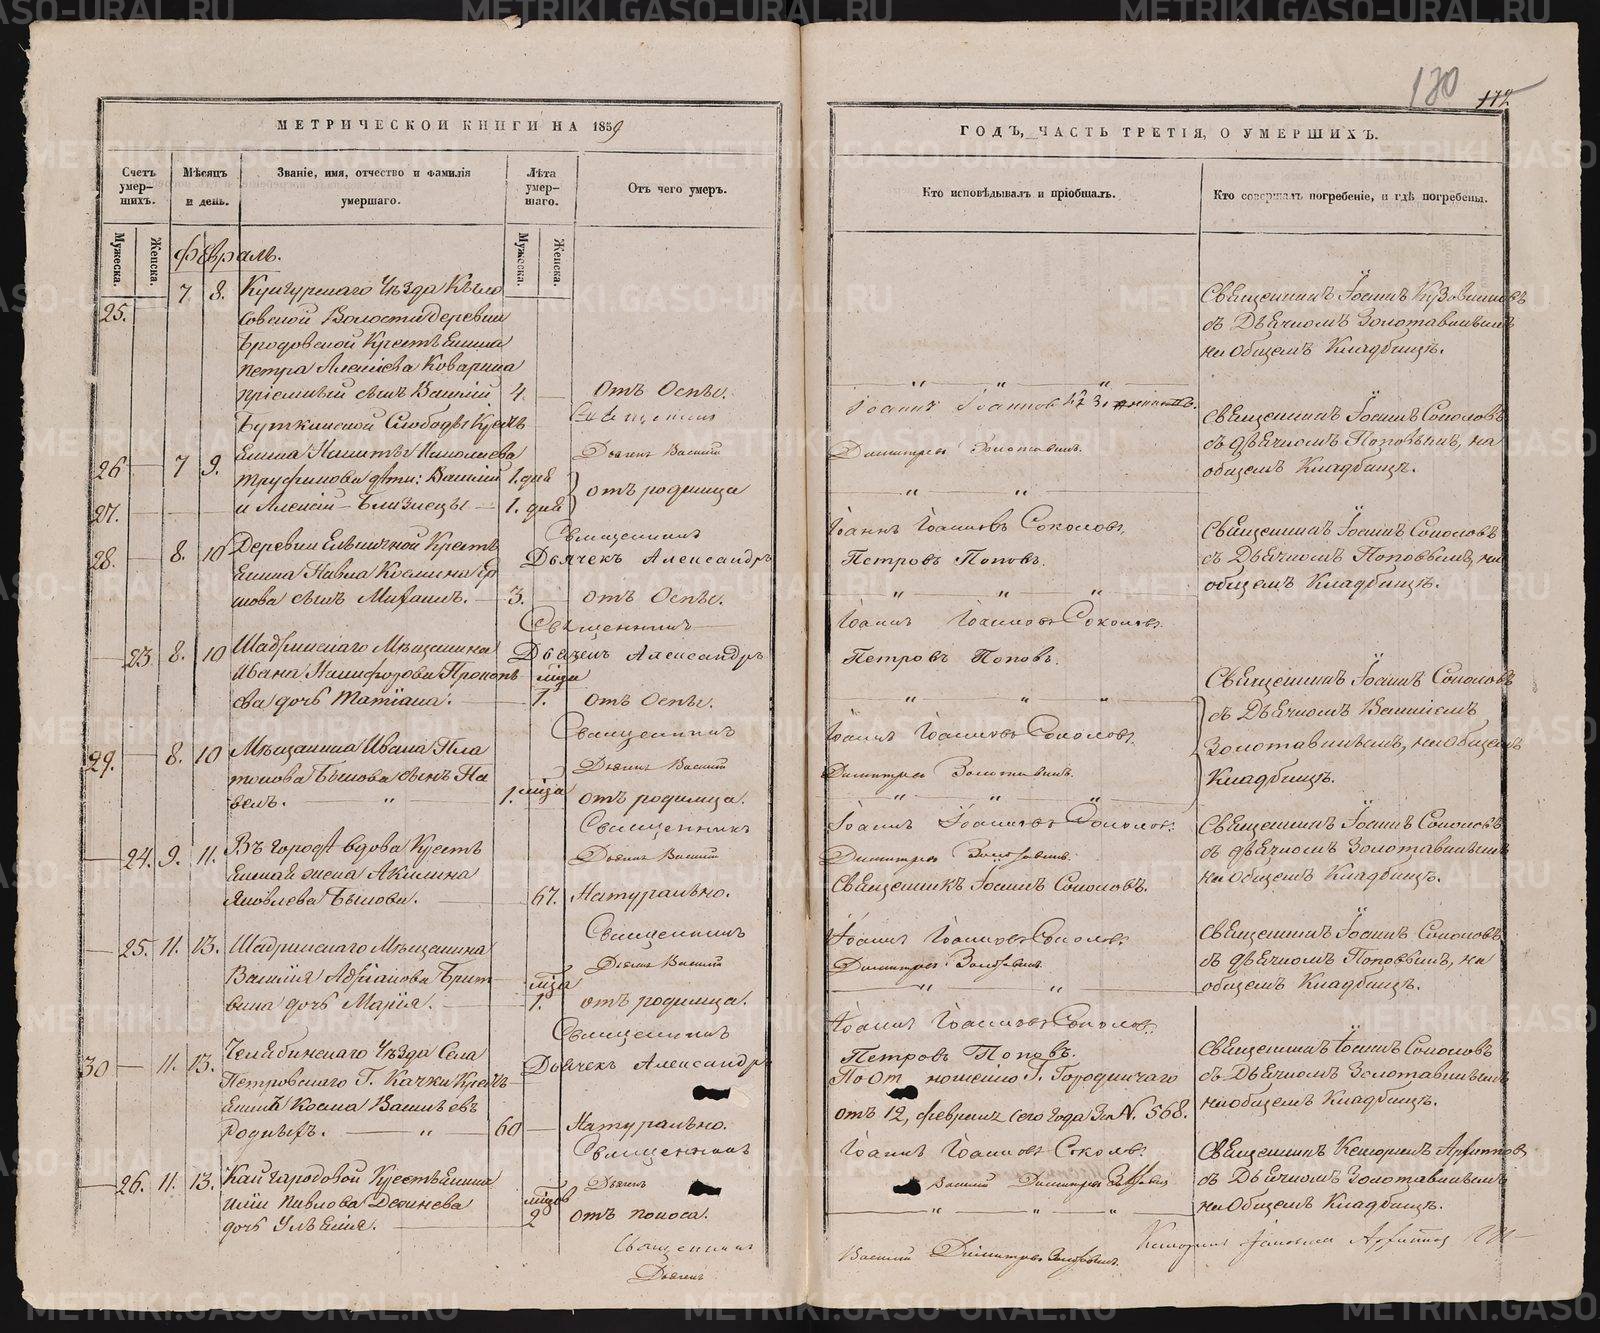 130
112
МЕТРИЧЕСКОЙ КНИГИ НА 1859
ГОДЪ, ЧАСТЬ ТРЕТІЯ, О УМЕРШИХЪ.
Счетъ умер-шихъ.
Мѣсяцъ и день.
Званіе, имя, отчество и фамилія умершаго.
Лѣта умер-шаго.
Отъ чего умеръ.
Кто исповѣдывалъ и пріобщалъ.
Кто совершалъ погребеніе, и гдѣ погребены.
Мужеска.
Женска.
Мужеска.
Женска.
Февраль.
25. 7 8. Кунгурскаго Уѣзда Кыло
совской Волости деревни
Бродовской Крестьянина
Петра Алексѣева Коварина
пріемный сынъ Василій 4. Отъ Оспы.
Священникъ Іоаннъ
съ Дьячкомъ Золотавинымъ
на Общемъ Кладбищѣ.
Священникъ Іоаннъ Іоанновъ
Дьячекъ Василій Димитріевъ Золотавинъ.
Буткинской Слободы Крестья
26 7 9. нина Никиты Николаева
Трифонова дѣти: Василій 1. дня
27. и Алексій – Близнецы 1. дня отъ родимца
Священникъ Іоаннъ Соколовъ
съ дьячкомъ Поповымъ, на
общемъ Кладбищѣ.
Священникъ Іоаннъ Іоанновъ Соколовъ.
Дьячекъ Александръ Петровъ Поповъ.
28. 8. 10 Деревни Ельничной Кресть
янина Павла Козмина Ер
шова сынъ Михаилъ. 3. отъ Оспы.
Священникъ Іоаннъ Соколовъ
съ Дьячкомъ Поповымъ, на
общемъ Кладбищѣ.
Священникъ Іоаннъ Іоанновъ Соколовъ.
Дьячекъ Александръ Петровъ Поповъ.
23 8. 10 Шадринскаго Мѣщанина
Ивана Никифорова Прокопь
ева дочь Татіана. мѣца 1. отъ Оспы.
Священникъ Іоаннъ Соколовъ
съ Дьячкомъ Василіемъ
Золотавинымъ, на Общемъ
Кладбищѣ.
Священникъ Іоаннъ Іоанновъ Соколовъ.
Дьячекъ Василій Димитріевъ Золотавинъ.
29. 8. 10 Мѣщанина Ивана Пла
тонова Бычова сынъ Па
велъ. 1. мѣца отъ родимца.
Священникъ Іоаннъ Іоанновъ Соколовъ.
Дьячекъ Василій Димитріевъ Золотавинъ.
24. 9. 11. Въ городѣ вдова Кресть
янская жена Акилина
Яковлева Бычова. 67. Натурально.
Священникъ Іоаннъ Соколовъ.
Священникъ Іоаннъ Соколовъ
съ дьячкомъ Золотавинымъ
на Общемъ Кладбищѣ.
Священникъ Іоаннъ Іоанновъ Соколовъ
Дьячекъ Василій Димитріевъ Золотавинъ.
25. 11. 13. Шадринскаго Мѣщанина
Василія Адріанова Брит
вина дочь Марія. мѣца 1. отъ родимца.
Священникъ Іоаннъ Соколовъ
съ дьячкомъ Поповымъ, на
общемъ Кладбищѣ.
Священникъ Іоаннъ Іоанновъ Соколовъ.
Дьячекъ Александръ Петровъ Поповъ.
30 11. 13. Челябинскаго Уѣзда Села
Петровскаго Г. Качки Кресть
янинъ Козма Васильевъ
Родныхъ. 60 Натурально.
По отношенію Г. Городничаго
отъ 12, февраля сего года за N. 568.
Священникъ Іоаннъ Соколовъ
съ Дьячкомъ Золотавинымъ
на общемъ Кладбищѣ.
Священникъ Іоаннъ Іоанновъ Соколовъ
Дьячекъ Василій Димитріевъ
26. 11. 13. Кайгородовой Крестьянина
Павлова
дочь Ульянія. мѣцов 2 отъ поноса.
Священникъ
съ Дьячкомъ Золотавинымъ
на Общемъ Кладбищѣ.
Священникъ
Дьячекъ Василій Димитріевъ Золотавинъ.
METRIKI.GASO-URAL.RU